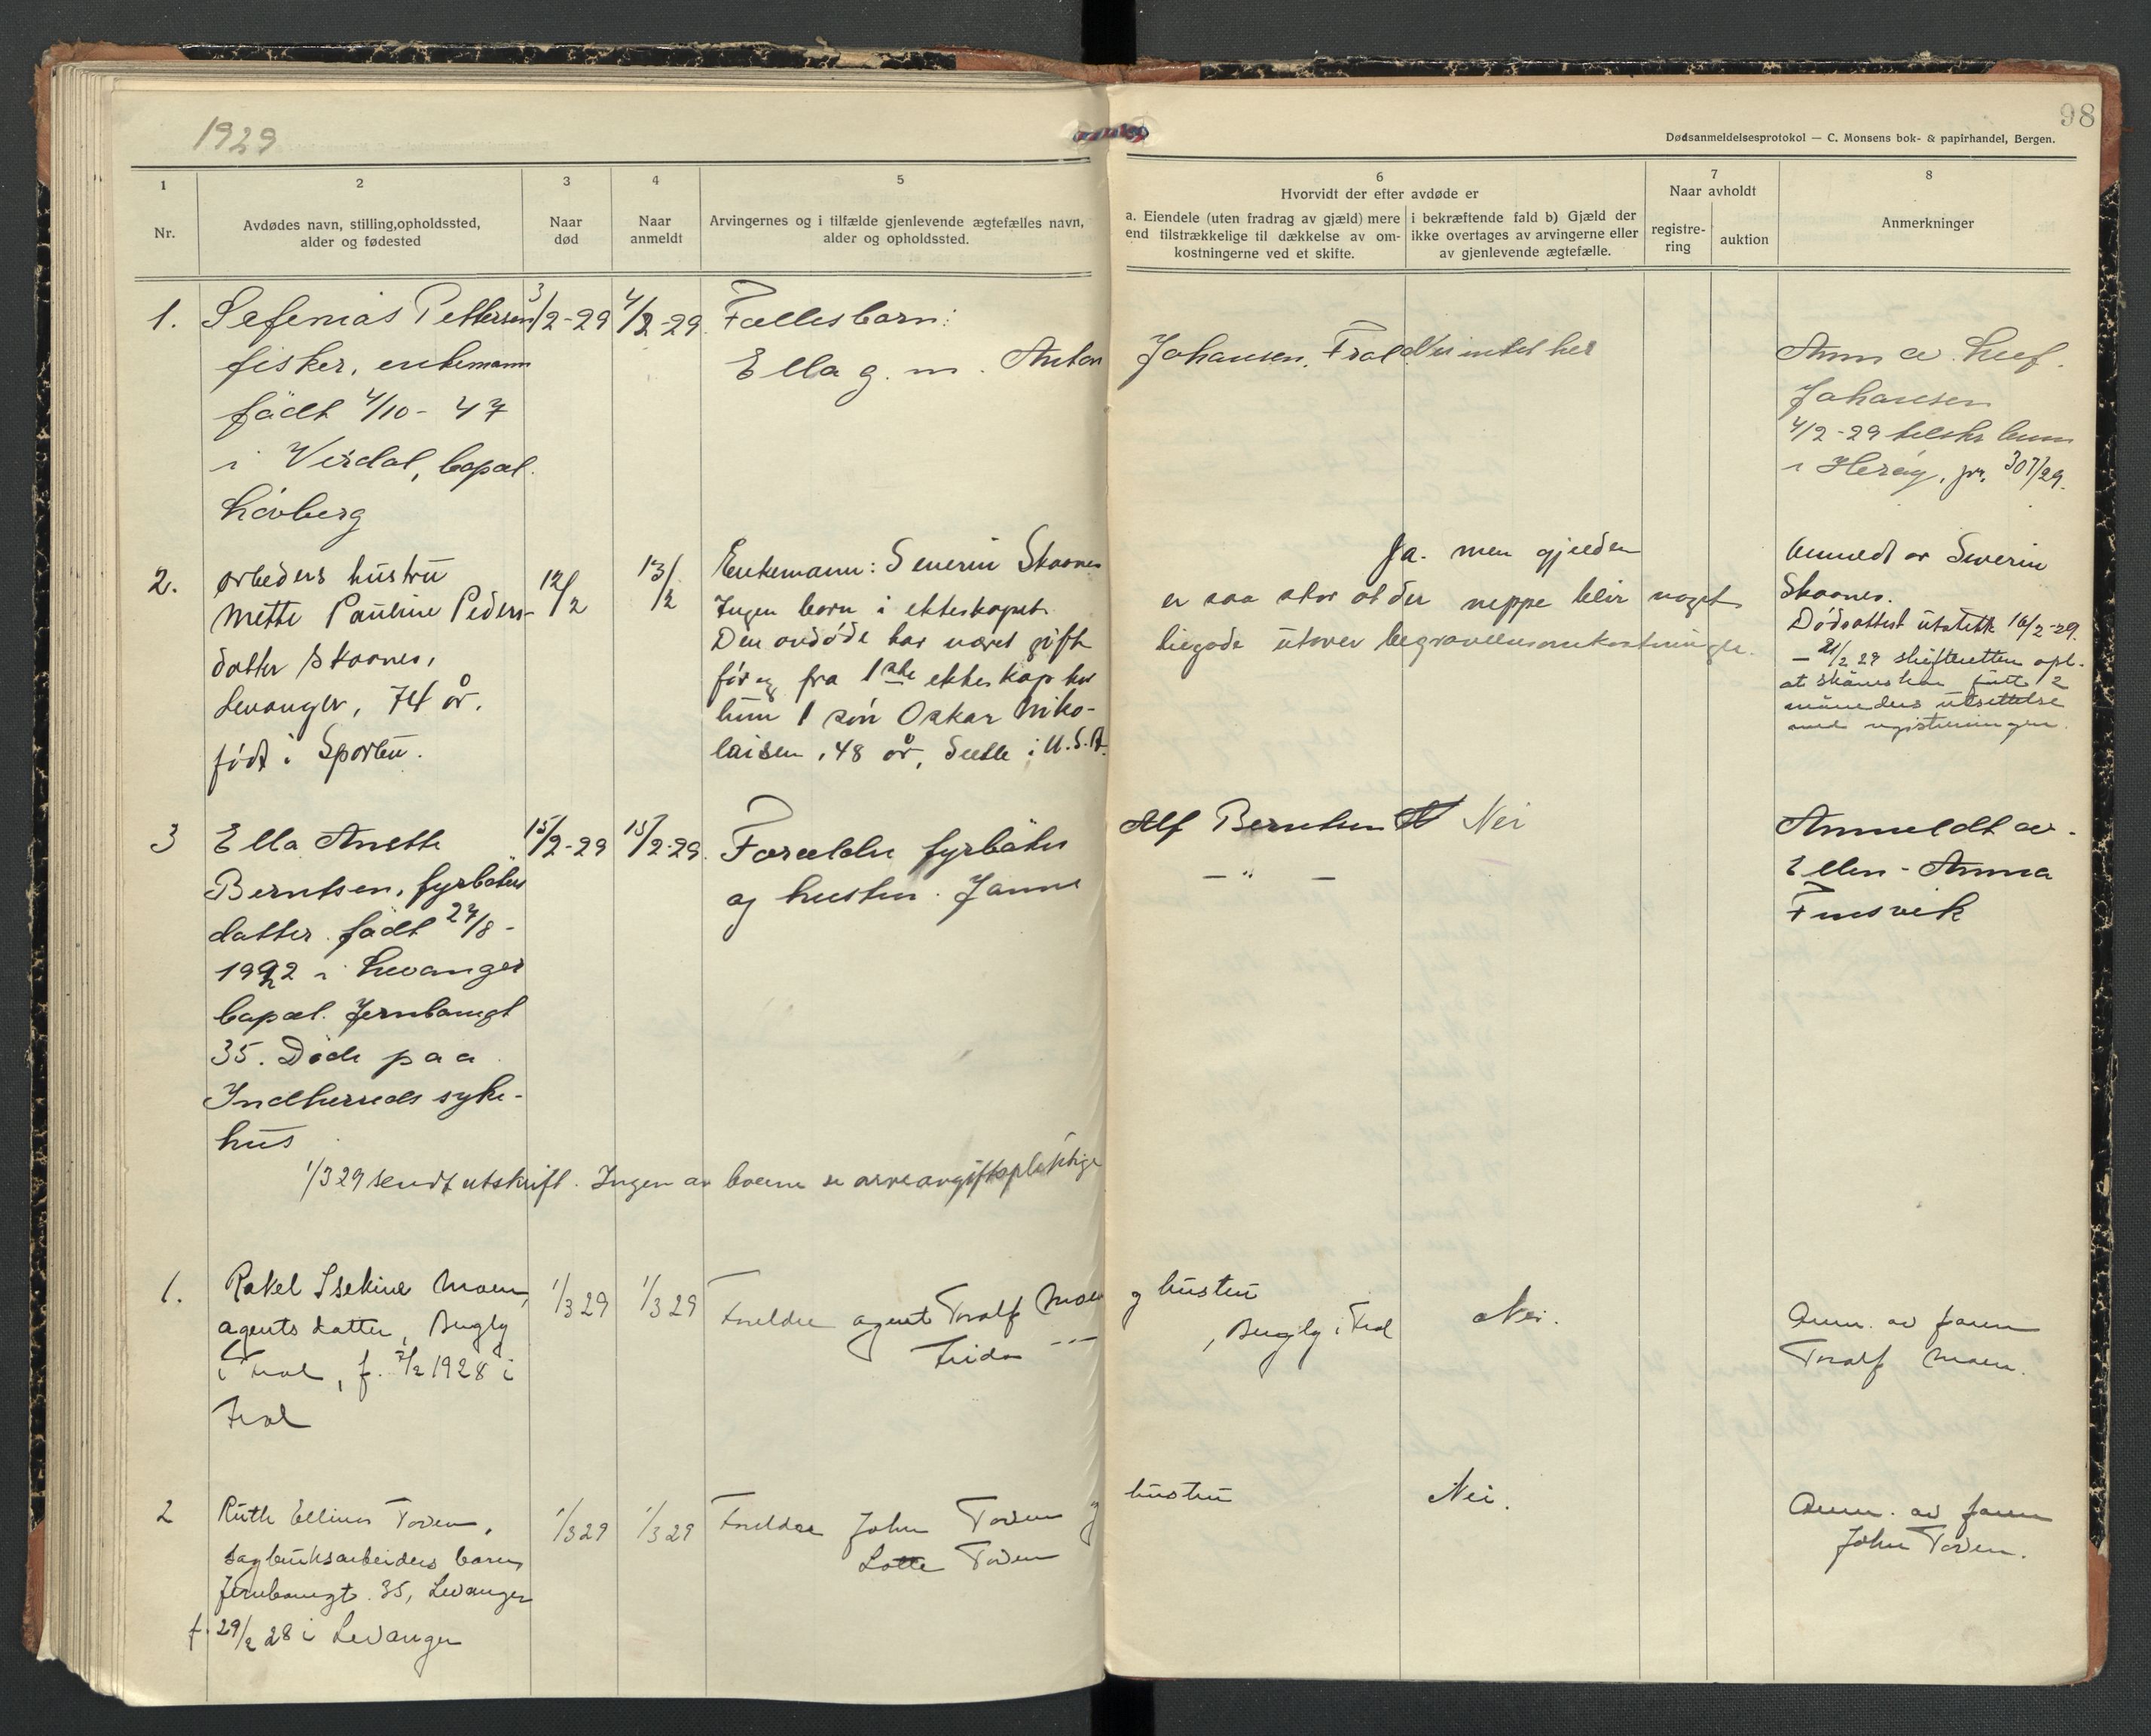 1929
98
Dødsanmeldelsesprotokol — C. Monsens bok- & papirhandel, Bergen.
1
Nr.
2
Avdødes navn, stilling, opholdssted,
alder og fødested
3
Naar
død
4
Naar
anmeldt
5
Arvingernes og i tilfælde gjenlevende ægtefælles navn,
alder og opholdssted.
6
Hvorvidt der efter avdøde er
a. Eiendele (uten fradrag av gjæld) mere
end tilstrækkelige til dækkelse av om-
kostningerne ved et skifte.
i bekræftende fald b) Gjæld der
ikke overtages av arvingerne eller
av gjenlevende ægtefælle.
7
Naar avholdt
registre-
ring
auktion
8
Anmerkninger
1.
Sefenias Pettersen
fisker, enkemann
födt 4/10 - 47
i Verdal, bopæl.
Lövberg
3/2-29
4/2-29
Fællesbarn:
Ella g. m. Anton
Johansen, Frol
Nei intet her
Anm av
Johansen
4/2-29
i Heröy, jr. 307/29.
2.
Arbeiders hustru
Mette Pauline Peders-
datter Skaanes,
Levanger, 74 år.
född i Sparbu.
12/2
13/2
Enkemann: Severin Skaanes
Ingen barn i ekteskapet.
Den avdøde har været gift
før og fra 1ste ekteskap har
hun 1 søn Oskar Niko-
laisen, 48 år, Seatle i U.S.A.
Ja. men gjælden
er saa stor at der neppe blir noget
tilgode utover begravelsesomkostningene.
Anmeldt av Severin
Skaanes.
Dødsattest utstedt 16/2-29.
— 21/2 29 skifteretten opl.
at Skånes har fått 2
måneders utsettelse
med registreringen.
3
Ella Anette
Berntsen, fyrböter
datter. födt 27/8 -
1922 i Levanger
bopæl. Jernbanegt
35. Döde paa
Indherreds syke-
hus
15/2-29
15/2-29.
Forældre fyrböter
og hustru. Janne
Alf Berntsen
— " —
Nei
Anmeldt av.
Ellen - Anna
Finsvik
1/3 29 sendt utskrift. Ingen av boerne er arveavgiftspliktige
1.
Rakel Isekine Moen,
agents datter, Bergly
i Frol, f. 2/2 1928 i
Frol
1/3 29
1/3 29
Foreldre agent Toralf Moen
Frida — " —
og hustru
, Bergly i Frol
Nei.
Anm. av faren
Toralf Moen.
2
Ruth Ellinor Toven,
sagbruksarbeiders barn,
Jernbanegt. 35, Levanger
f. 29/2 28 i Levanger
1/3 29
1/3 29
Foreldre John Toven og
Lotte Toven
hustru
Nei.
Anm. av faren
John Toven.